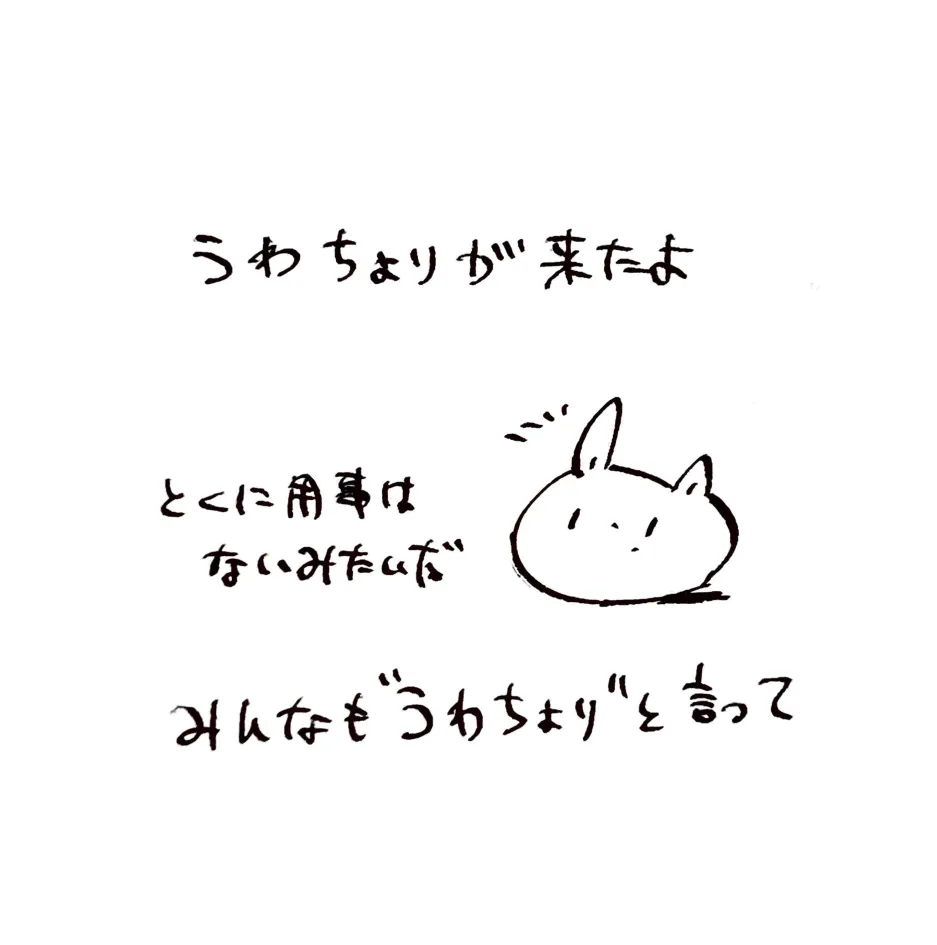 うわちょりが来たよ
とくに用事は
ないみたいだ
みんなも"うわちょり"と言って